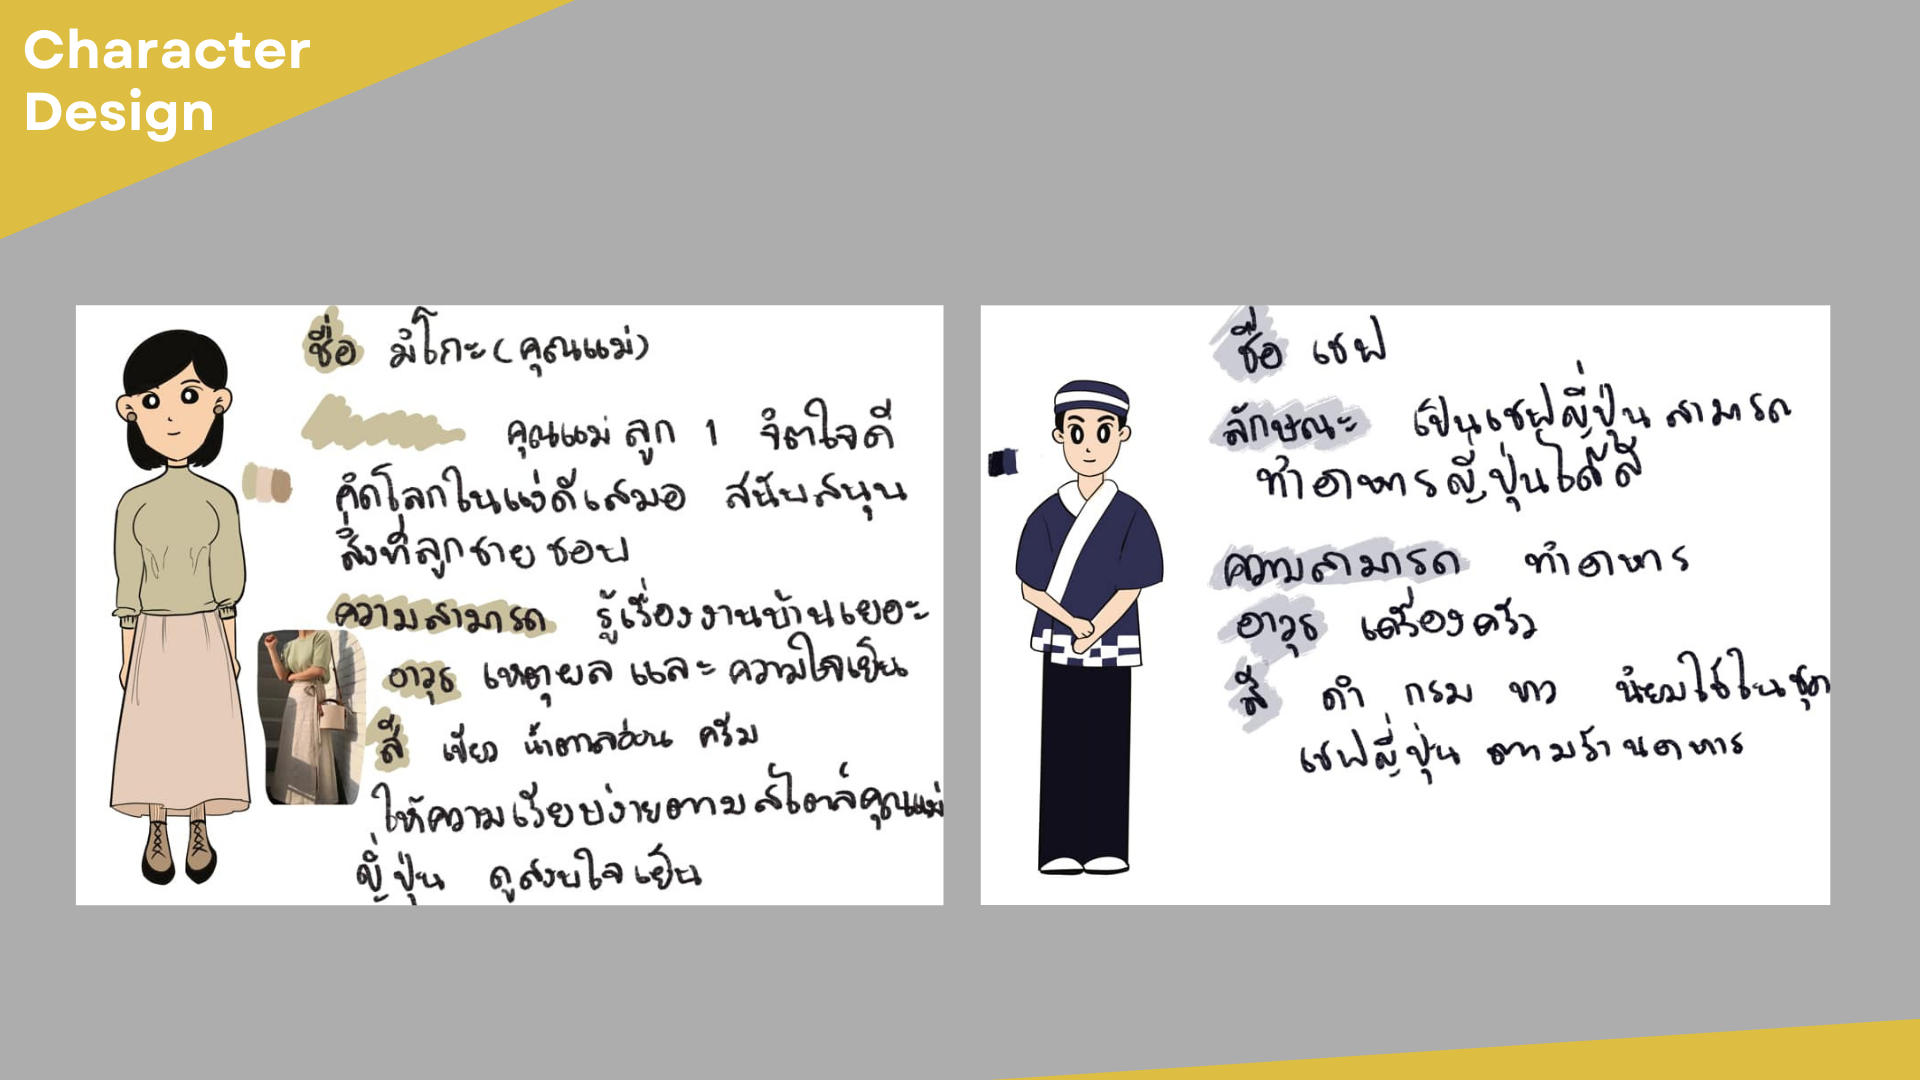 Character
Design
ชื่อ มิโกะ (คุณแม่)
คุณแม่ ลูก 1 จิตใจดี
คิดโลกในแง่ดีเสมอ สนับสนุน
สิ่งที่ลูกชายชอบ
ความสามารถ รู้เรื่องงานบ้านเยอะ
อาวุธ เหตุผล และ ความใจเย็น
สี เขียว น้ำตาลอ่อน ครีม
ให้ความเรียบง่ายตามสไตล์คุณแม่
ญี่ปุ่น ดูสงบใจเย็น
ชื่อ เชฟ
ลักษณะ เป็นเชฟญี่ปุ่น สามารถ
ทำอาหารญี่ปุ่นได้ดี
ความสามารถ ทำอาหาร
อาวุธ เครื่องครัว
สี ดำ กรม ขาว นิยมใช้ในชุด
เชฟญี่ปุ่น ตามร้านอาหาร